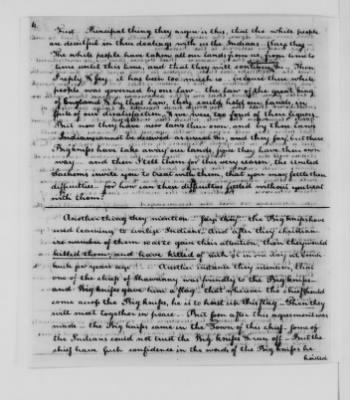 4
First. Principal thing they argue is this, that the white people
are deceitful in their dealings with us the Indians. Says they —
The white people have taken all our lands from us, from time to
time until this time, and that they will continue. Then
I reply & say, it has been too much so. because these white
people was governed by one law — the law of the great king
of England & by that law, they could hold our lands, in
spite of our dissatisfaction, & we were too fond of their liquors.
But now they have new laws their own, and by these laws
Indians cannot be deceived as usual &c. and they say, but these
Big knifes have taken away our lands, since they have their own
way. and then I tell them for this very reason, the United
Sachems invite you to treat with them, that you may settle these
difficulties. for how can these difficulties settled without you treat
with them?
Another thing they mention. Says they. the Big knifes have
used learning to civilize Indians, and after they christian-
ize number of them so as to gain their attention, then they would
killed them, and have killed of such 96 in one day at
years ago. Another instance they mention, that
one of the chiefs of Shawany was friendly to the Big knifes
and Big knifes gave him a flag, that wherever the chief should
come across the Big knifes, he is to hoist up this flag — Then they
will meet together in peace. But soon after this agreement was
made — the Big knifes came in the Town of this chief. Some of
the Indians could not trust the Big knifes & ran off — But the
chief have such confidence in the words of the Big knifes he
hoisted